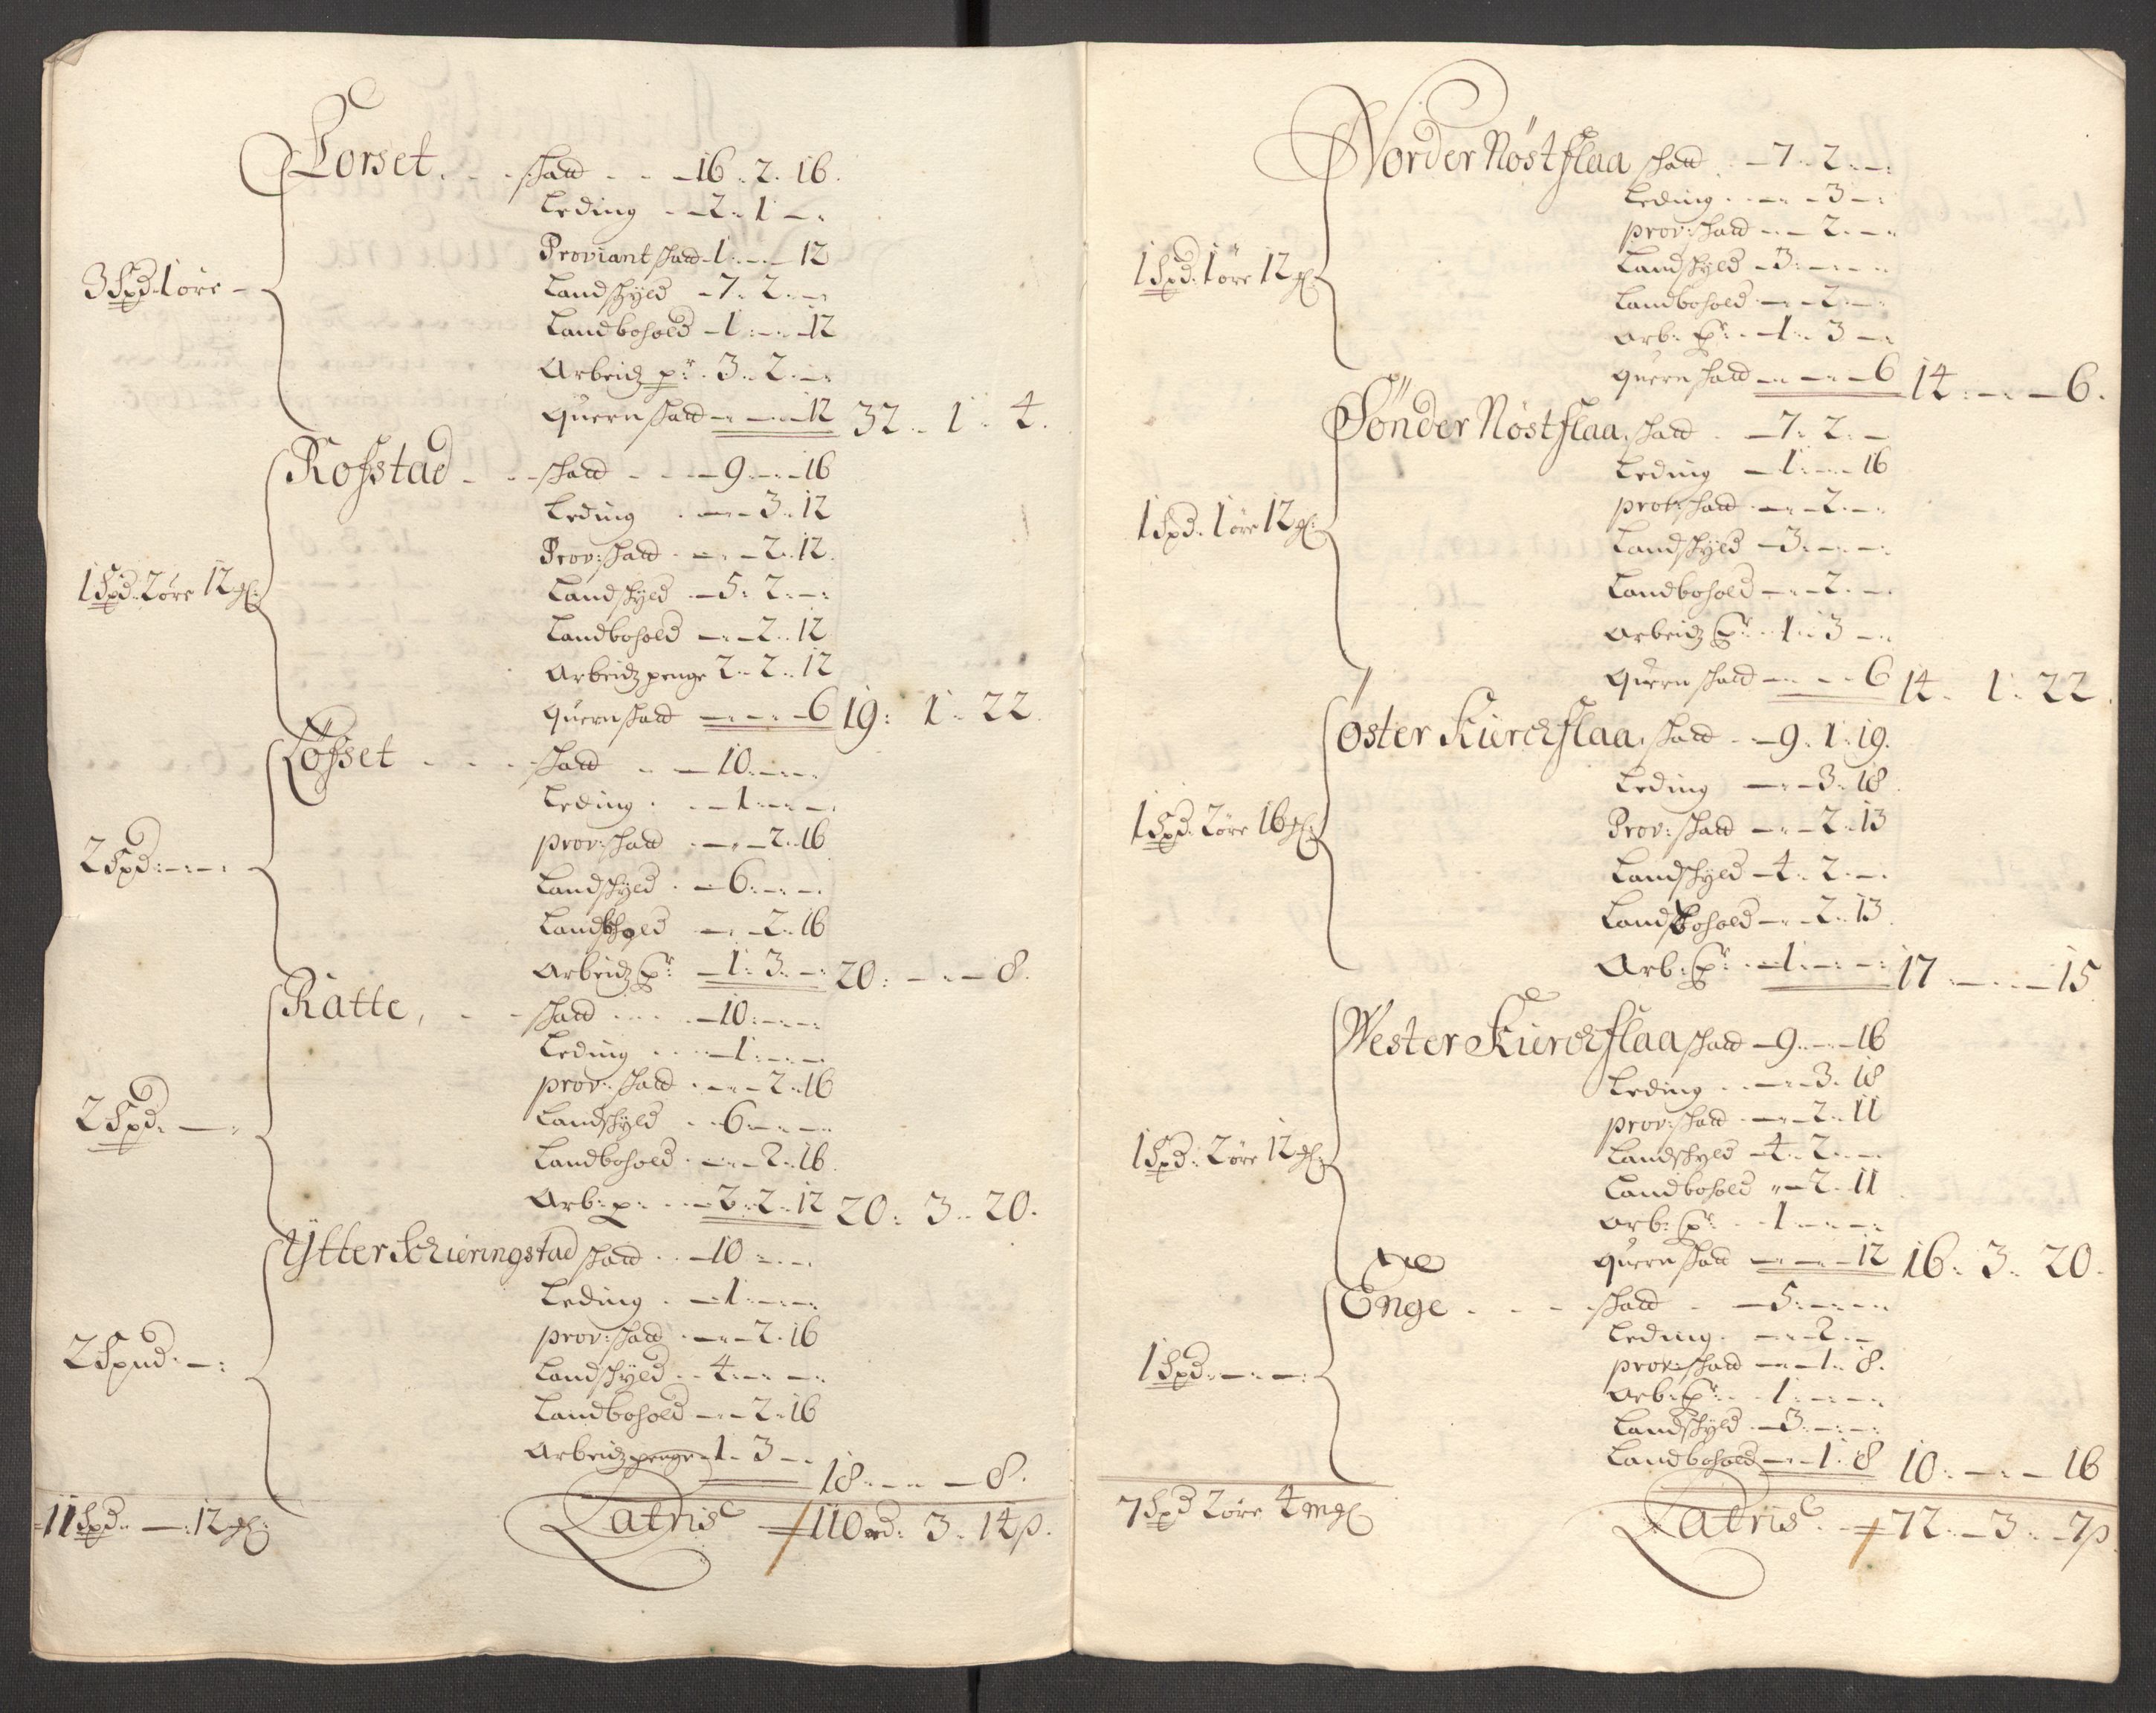 Torset. - - skatt - - - 16. 2. 16.
Leding - - 2. 1 -
Proviant skatt - 1. - - 12
3 Spd 1 øre -
Landskyld - 7. 2. -
Landbohold - 1. - - 12
Arbeidz pr. 3. 2. -
Quernskatt - - - 12 32. 1. 4.
Rosstad - - skatt - - - 9. - - 16
Leding - - 3. 12
Prov: skatt - - 2. 12.
1 Spd. 2 øre 12 gl:
Landskyld - 5. 2. -
Landbohold - - 2. 12
Arbeidz penge 2. 2. 12
Quernskatt - - - 6 19: 1: 22.
Lösset - - - skatt - - 10. - -
Leding. - - 1. - -
prov: skatt - - 2. 16
2 Spd: - - -
Landskyld. - 6. - -
Landbohold - - 2. 16
Arbeidz pr: - 1: 3. - 20: - - 8.
Ratte, - - skatt - - - 10: - -
Leding - - - 1. - -
prov: skatt - - - 2. 16
2 Spd. - -
Landskyld - - 6. - -
Landbohold - - - 2. 16.
Arb: p: - - 2. 2. 12 20: 3. 20.
Ytter Schieringstad skatt - - 10. - -
Leding. - 1. - -
prov: skatt - - - 2. 16
2 Spnd. - :
Landskyld - - 4. - -
Landbohold - - - 2. 16
Arbeidz penge - 1. 3 - 18. - - 8.
11 Spd. - : 12 gl: Latris 110 rd: 3. 14 p.
Norder Nöstflaa skatt - 7. 2. -
Leding. - - - 3 -
prov: skatt - - 2. -
1 Spd. 1 øre 12 gl.
Landskyld - 3. - -
Landbohold - - 2. -
Arb: pr. - 1. 3 -
Quern skatt - - - 6 14: - - 6.
Sönder Nöstflaa, skatt. - 7. 2. -
Leding - 1. - - 16
prov: skatt - - 2. -
1 Spd. 1 øre 12 gl:
Landskyld - 3. - -
Landbohold - - 2. -
Arbeidz pr. - 1. 3 -
Quern skatt - - - 6 14. 1. 22.
öster Kierckflaa, skatt - - 9. 1. 19.
Leding - - 3. 18
Prov: skatt - - 2. 13
1 Spd. 2 øre 16 gl:
Landskyld - 4. 2. -
Landbohold - - 2. 13.
Arb: pr. - 1. - - 17. - - 15
Wester Kierckflaa skatt - 9. - - 16
Leding - - - 3. 18
prov: skatt - - 2. 11
1 Spd. 2 øre 12 gl:
Landskyld - 4. 2. -
Landbohold - - 2. 11
Arb: pr. - 1. - -
Quern skatt - - - 12 16. 3. 20.
Enge - - - skatt - - 5. - -
Leding. - - 2. -
prov: skatt - - 1. 8.
1 Spd. - - -
Arb: pr. - 1. - -
Landskyld - 3. - -
Landbohold - - 1. 8 10: - - 16
7 Spd 2 øre 4 mgl Latris. - 72. - 3. - 7 p.